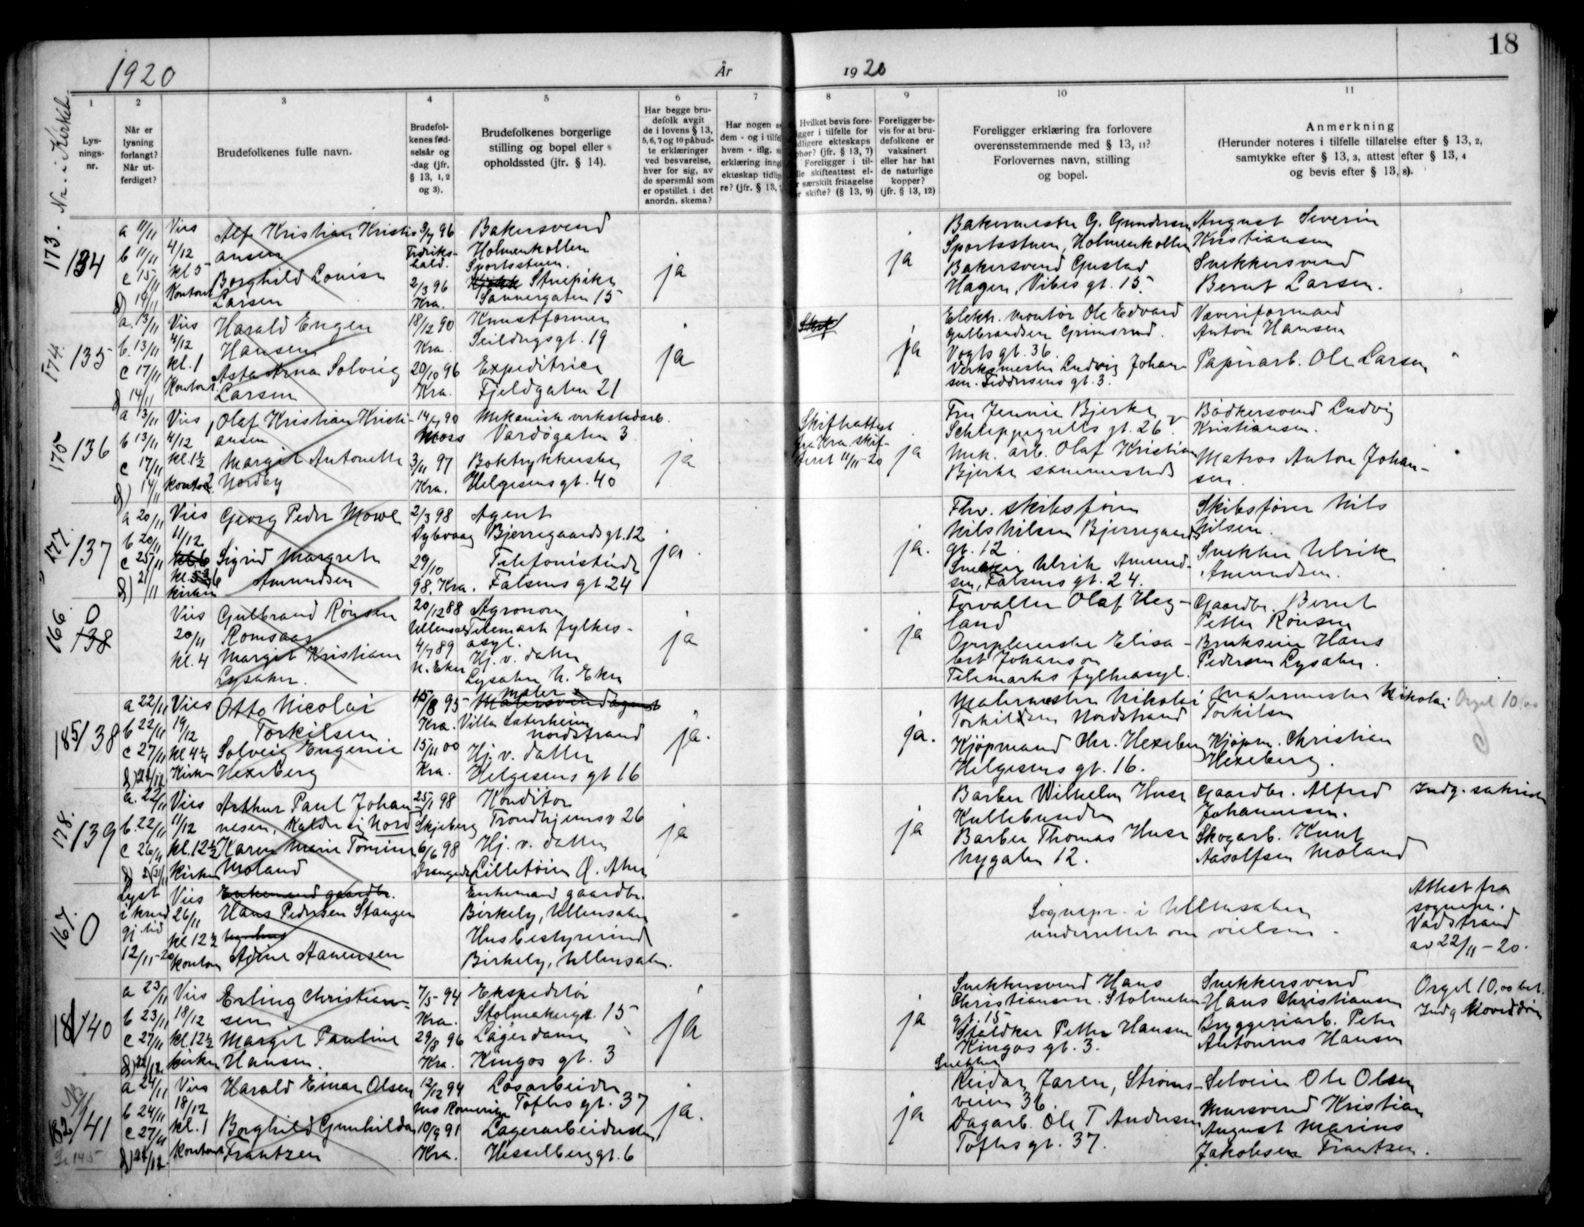 1920
År
1920
18
Nr. i Kirkeb.
1
Lys-
nings-
nr.
2
Når er
lysning
forlangt?
Når ut-
ferdiget?
3
Brudefolkenes fulle navn.
4
Brudefol-
kenes fød-
selsår og
-dag (jfr.
§ 13, 1, 2
og 3).
5
Brudefolkenes borgerlige
stilling og bopel eller
opholdssted (jfr. § 14).
6
Har begge bru-
defolk avgit
de i lovens § 13,
5, 6, 7 og 10 påbud-
te erklæringer
ved besvarelse,
hver for sig, av
de spørsmål som
er opstillet i det
anordn. skema?
7
Har nogen
dem - og i tilfe
hvem - iflg.
erklæring inng
ekteskap tidlig
re? (jfr. § 13,
8
Hvilket bevis fore-
ligger i tilfelle for
tidligere ekteskaps
ophør? (jfr. § 13, 7)
Foreligger i til-
felle skifteattest el-
er særskilt fritagelse
r skifte? (jfr. § 13, 9)
9
Foreligger be-
vis for at bru-
defolkene er
vaksinert
eller har hat
de naturlige
kopper?
(jfr. § 13, 12)
10
Foreligger erklæring fra forlovere
overensstemmende med § 13, 11?
Forlovernes navn, stilling
og bopel.
11
Anmerkning
(Herunder noteres i tilfelle tillatelse efter § 13, 2,
samtykke efter § 13, 3, attest efter § 13, 4
og bevis efter § 13, 8).
173.
134
a 11/11
b 11/11
c 15/11
d) 19/11
Vies
4/12
kl 5
Kontoret
Alf Kristian Kristi-
ansen
Borghild Lovise
Larsen
3/7 96
Fredriks-
hald.
2/3 96
Kra.
Bakersvend
Holmenkollen
Sportsstuen.
Stuepike
Sannergaten 15
ja
ja
Bakermester G. Gundersen
Sportsstuen, Holmenkollen
Bakersvend Gustav
Hagen, Vibes gt. 15.
August Severin
Kristiansen
Snekkersvend
Bernt Larsen.
174.
135
a. 13/11
b. 13/11
c 17/11
d 14/11
Vies
4/12
kl. 1
Kontoret
Harald Engen
Hansen
Asta Anna Solveig
Larsen
18/12 90
Kra.
20/10 96
Kra.
Kunstformer
Seildugsgt. 19
Expeditrice
Fjeldgaten 21
ja
Skif
ja
Elektr. montør Ole Edvard
Gulbrandsen Grimsrud.
Vogts gt. 36.
Verksmester Ludvig Johan-
sen. Fiddersens gt. 3.
Væveriformand
Anton Hansen
Papirarb. Ole Larsen
175
136
a 13/11
b 13/11
c 17/11
d) 14/11
Vies
4/12
kl. 1½
kontor
Olaf Kristian Kristi-
ansen
Margit Antonette
Nordby
90
Moss
3/11 97
Kra.
Mekanisk verkstedarb.
Vardøgaten 3
Boktrykkerske
Helgesens gt. 40
ja
Skifteattest
fra Kra. skif-
teret 11/11-20
ja
Fru Jennie Bjerke
Schleppegrells gt. 26
Mek. arb. Olaf Kristian
Bjerke sammesteds
Bødkersvend Ludvig
Kristiansen.
Matros Anton Johan-
sen.
177.
137
a 20/11
b 20/11
c 25/11
d) 21/11
Vies
11/12
kl 6
kl 5½
kirken
Georg Peder Mowe
Sigrid Margrete
Amundsen
2/3 98
Dybvaag
29/10
98. Kra.
Agent
Bjerregaards gt. 12
Telefonistinde
Falsens gt 24
ja.
ja.
Fhv. skibsfører
Nils Nilsen Bjerregaards
gt. 12.
Snekker Ulrik Amund-
sen, Falsens gt. 24.
Skibsfører Nils
Nilsen.
Snekker Ulrik
Amundsen.
166.
0
138
Vies
20/11
kl. 4
Gulbrand Rønsen
Romsaas
Margit Kristiane
Lysaker.
20/12 88
Ullensaker
4/7 89
N. Eker
Agronom
Telemark fylkes-
asyl.
Hj. v. datter
Lysaker N. Eker
ja
ja
Forvalter Olaf Heg-
land
Opsynerske Elisa-
bet Johanson
Telemarks fylkesasyl.
Gaardbr. Bernt
Petter Rønsen
Brukseier Hans
Pedersen Lysaker.
185
138
a 22/11
b 22/11
c 27/11
Vies
19/12
kl 4½
Kirken
Otto Nicolai
Torkilsen
Solveig Eugenie
Hexeberg
15/8 95
Kra.
15/11 00
Kra.
maler
Malersvend
Villa Esterheim
Nordstrand
Hj. v. datter
Helgesens gt 16
ja.
ja.
Malermester Nikolai
Torkildsen Nordstrand
Kjøpmand Chr. Hexeberg
Helgesens gt. 16.
Malermester Nikolai
Torkilsen
Kjøpm. Christian
Hexeberg.
Orgel 10,00
178.
139
a. 22/11
b. 22/11
c 26/11
Vies
11/12
kl. 12½
kirken
Arthur Paul Johan-
nesen, kalder sig Nord
Karen Marie Tomine
Moland
25/1 98
Skjeberg
6/6 98
Drangedal
Konditor
Trondhjemsv 26
Hj. v. datter
Lilletøien Ø. Aker
ja
ja
Barber Wilhelm Huse
Kullebunden
Barber Thomas Huse
Nygaten 12.
Gaardbr. Alfred
Johannesen.
Skogarb. Knut
Aasolfsen Moland
Indg. sakristi
167.
0
Lyst
12/11-20
Vies
26/11
kl 12½
kontor
Enkemand gaardbr.
Hans Pedersen Stangen
Adine Aanensen
Enkemand gaardbr.
Birkely, Ullensaker
Husbestyrerinde
Birkely, Ullensaker.
Sognepr. i Ullensaker
underrettet om vielsen.
Attest fra
sognepr.
Vadstrand
av 22/11-20.
181
140
a 23/11
b 23/11
c 27/11
Vies
18/12
kl. 12½
kirken
Erling Christian-
sen
Margit Pauline
Hansen.
7/5 94
Kra.
29/8 96
Kra.
Ekspeditør
Stolmakergt. 15
Lagerdame
Kingos gt. 3
ja
ja
Snekkersvend Hans
Christiansen. Stolmaker
gt. 15
Staldkar Petter Hansen
Kingos gt. 3.
Snekkersvend
Hans Christiansen
Bryggeriarb. Peter
Antonius Hansen
Orgel 10,00 bet.
Indg. Hoveddør
182
141
a 24/11
b 24/11
c 27/11
Vies
18/12
kl. 1
kontoret
Harald Einar Olsen
Borghild Gunhilda
Frantzen
12/12 94
Nes Romerike
10/9 91
Kra.
Løsarbeider
Toftes gt. 37
Lagerarbeiderske
Hesselberggt. 6
ja.
ja
Snekker
Reidar Jaren, Strøms-
veien 36.
Dagarb. Ole T Andersen
Toftes gt. 37.
Selveier Ole Olsen
Mursvend Kristian
August Marius
Jakobsen Frantzen.